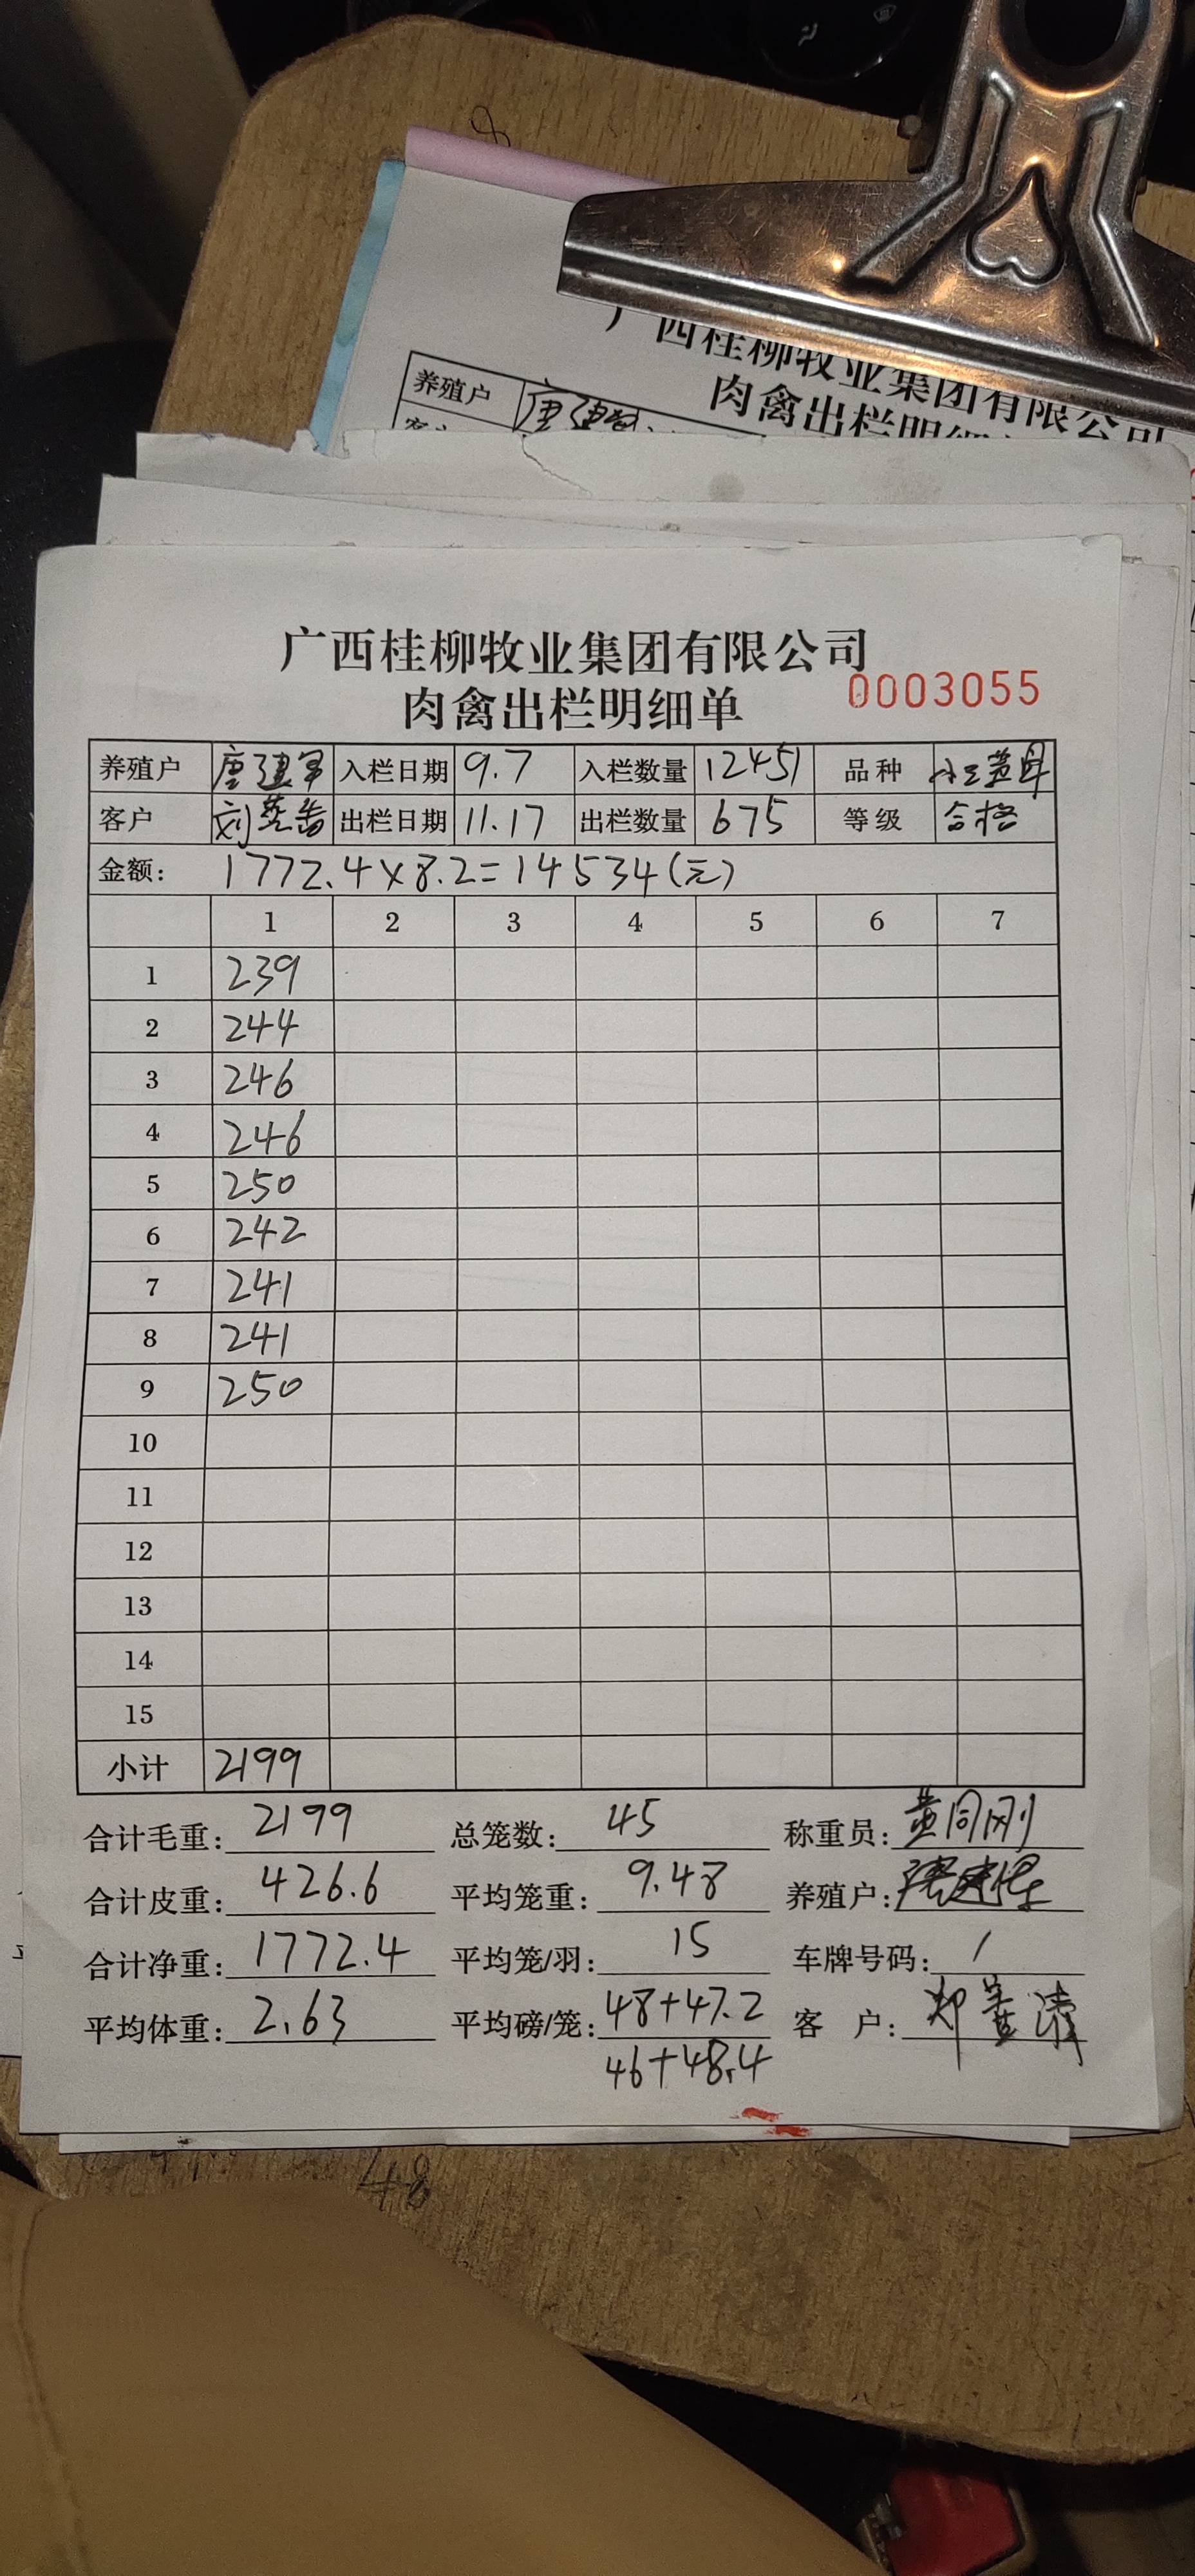 广西桂柳牧业集团有限公司
肉禽出栏明细
养殖户 唐建军
广西桂柳牧业集团有限公司
肉禽出栏明细单 0003055
养殖户 唐建军 入栏日期 9.7 入栏数量 12451 品种
客户 出栏日期 11.17 出栏数量 675 等级 合格
金额: 1772.4×8.2=14534(元)
1 2 3 4 5 6 7
1 239
2 244
3 246
4 246
5 250
6 242
7 241
8 241
9 250
10
11
12
13
14
15
小计 2199
合计毛重: 2199 总笼数: 45 称重员: 黄同刚
合计皮重: 426.6 平均笼重: 9.48 养殖户:
合计净重: 1772.4 平均笼/羽: 15 车牌号码: /
平均体重: 2.63 平均磅/笼: 48+47.2 客 户:
46+48.4
48